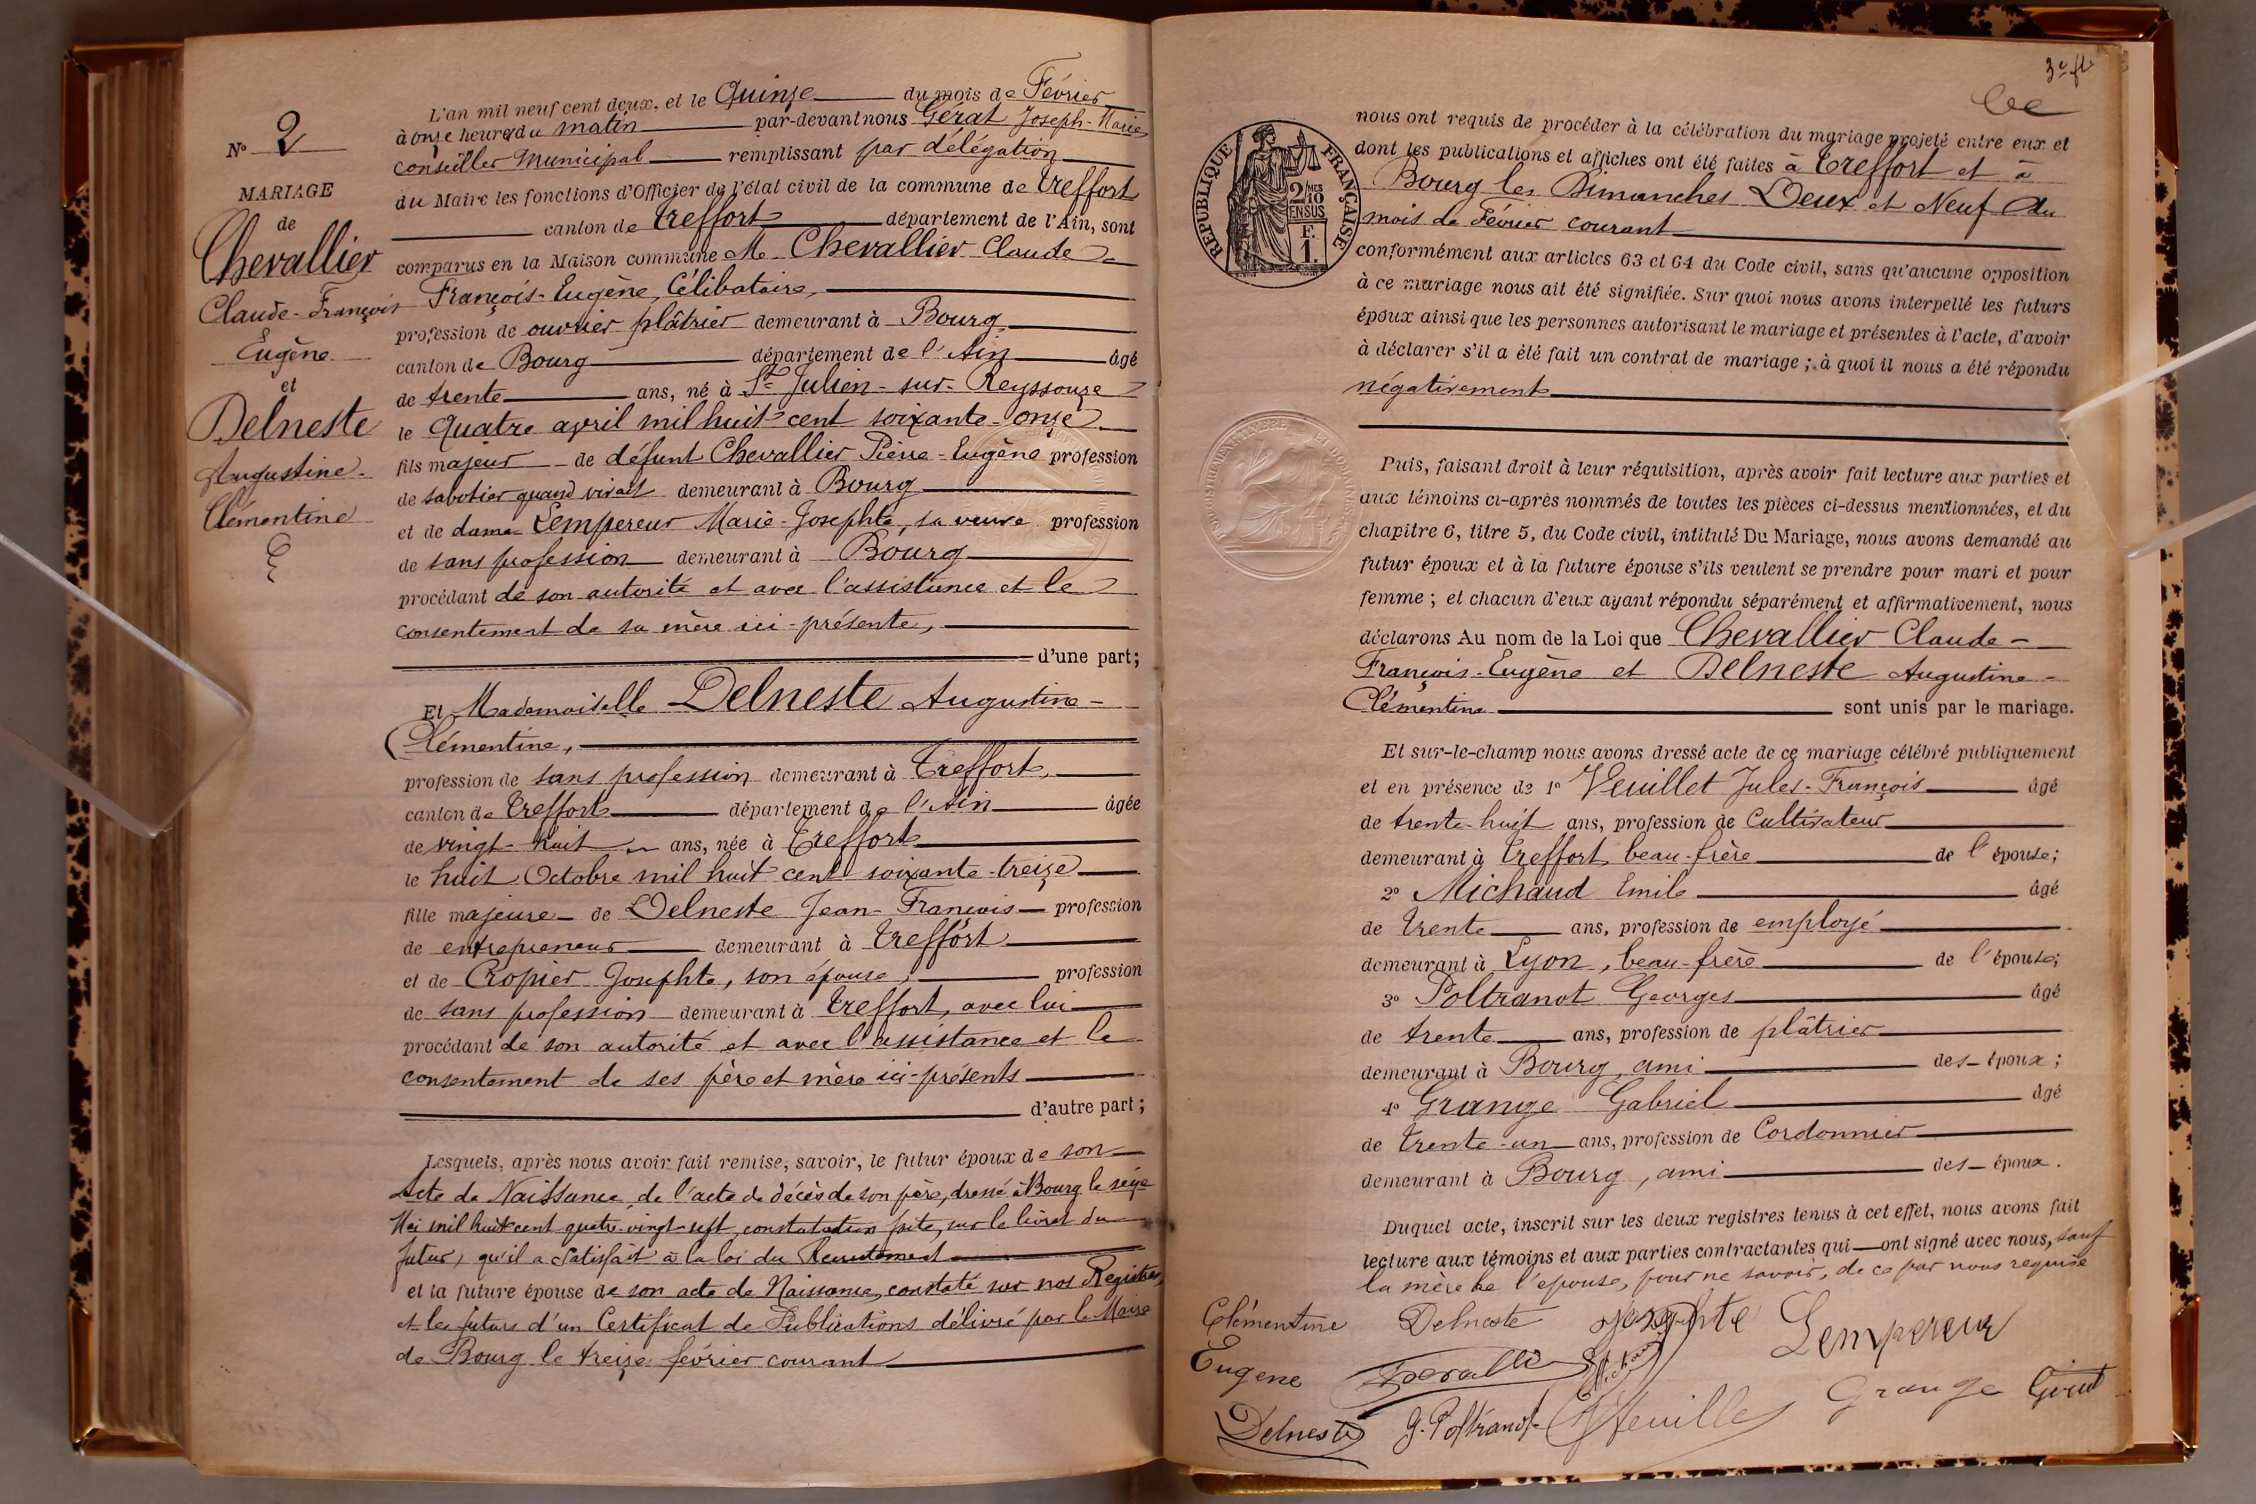 N° 2
MARIAGE
de
Chevallier
Claude-François
Eugène
et
Delneste
Augustine-
Clémentine
L'an mil neuf cent deux, et le Quinze du mois de Février
à onze heures du matin par-devant nous Gérat Joseph-Marie
conseiller Municipal remplissant par délégation
du Maire les fonctions d'Officier de l'état civil de la commune de Treffort
canton de Treffort département de l'Ain, sont
comparus en la Maison commune M. Chevallier Claude
François-Eugène, Célibataire,
profession de ouvrier plâtrier demeurant à Bourg
canton de Bourg département de l'Ain âgé
de trente ans, né à St Julien-sur-Reyssouze
le quatre avril mil huit cent soixante-onze
fils majeur de défunt Chevallier Pierre-Eugène profession
de sabotier quand vivait demeurant à Bourg
et de dame Lempereur Marie-Josephte, sa veuve profession
de sans profession demeurant à Bourg
procédant de son autorité et avec l'assistance et le
consentement de sa mère ici-présente,
d'une part;
Et Mademoiselle Delneste Augustine-
Clémentine,
profession de sans profession demeurant à Treffort,
canton de Treffort département de l'Ain âgée
de vingt-huit ans, née à Treffort
le huit Octobre mil huit cent soixante-treize
fille majeure de Delneste Jean-François profession
de entrepreneur demeurant à Treffort
et de Cropier Josephte, son épouse, profession
de sans profession demeurant à Treffort, avec lui
procédant de son autorité et avec l'assistance et le
consentement de ses père et mère ici-présents
d'autre part;
Lesquels, après nous avoir fait remise, savoir, le futur époux de son
Acte de Naissance, de l'acte de décès de son père, dressé à Bourg le seize
Mai mil huit cent quatre-vingt-sept, constatation faite, sur le livret du
futur, qu'il a satisfait à la loi du Recrutement
et la future épouse de son acte de Naissance, constaté sur nos Registres,
et les futurs d'un Certificat de Publications délivré par le Maire
de Bourg le treize février courant
3e ft
RÉPUBLIQUE FRANÇAISE
2/10mes
EN SUS
F.
1.
nous ont requis de procéder à la célébration du mariage projeté entre eux et
dont les publications et affiches ont été faites à Treffort et à
Bourg les Dimanches Deux et Neuf du
mois de Février courant
conformément aux articles 63 et 64 du Code civil, sans qu'aucune opposition
à ce mariage nous ait été signifiée. Sur quoi nous avons interpellé les futurs
époux ainsi que les personnes autorisant le mariage et présentes à l'acte, d'avoir
à déclarer s'il a été fait un contrat de mariage; à quoi il nous a été répondu
négativement
Puis, faisant droit à leur réquisition, après avoir fait lecture aux parties et
aux témoins ci-après nommés de toutes les pièces ci-dessus mentionnées, et du
chapitre 6, titre 5, du Code civil, intitulé Du Mariage, nous avons demandé au
futur époux et à la future épouse s'ils veulent se prendre pour mari et pour
femme; et chacun d'eux ayant répondu séparément et affirmativement, nous
déclarons Au nom de la Loi que Chevallier Claude-
François-Eugène et Delneste Augustine-
Clémentine sont unis par le mariage.
Et sur-le-champ nous avons dressé acte de ce mariage célébré publiquement
et en présence de 1° Veuillet Jules-François âgé
de trente-huit ans, profession de Cultivateur
demeurant à Treffort, beau-frère de l'épouse;
2° Michaud Emile âgé
de trente ans, profession de employé
demeurant à Lyon, beau-frère de l'épouse;
3° Poltranot Georges âgé
de trente ans, profession de plâtrier
demeurant à Bourg, ami des époux;
4° Grange Gabriel âgé
de trente-un ans, profession de Cordonnier
demeurant à Bourg, ami des époux.
Duquel acte, inscrit sur les deux registres tenus à cet effet, nous avons fait
lecture aux témoins et aux parties contractantes qui ont signé avec nous, sauf
la mère de l'épouse, pour ne savoir, de ce par nous requise
Clémentine Delneste Josephte Lempereur
Eugene
Delneste G. Poltranot Grange Gérat